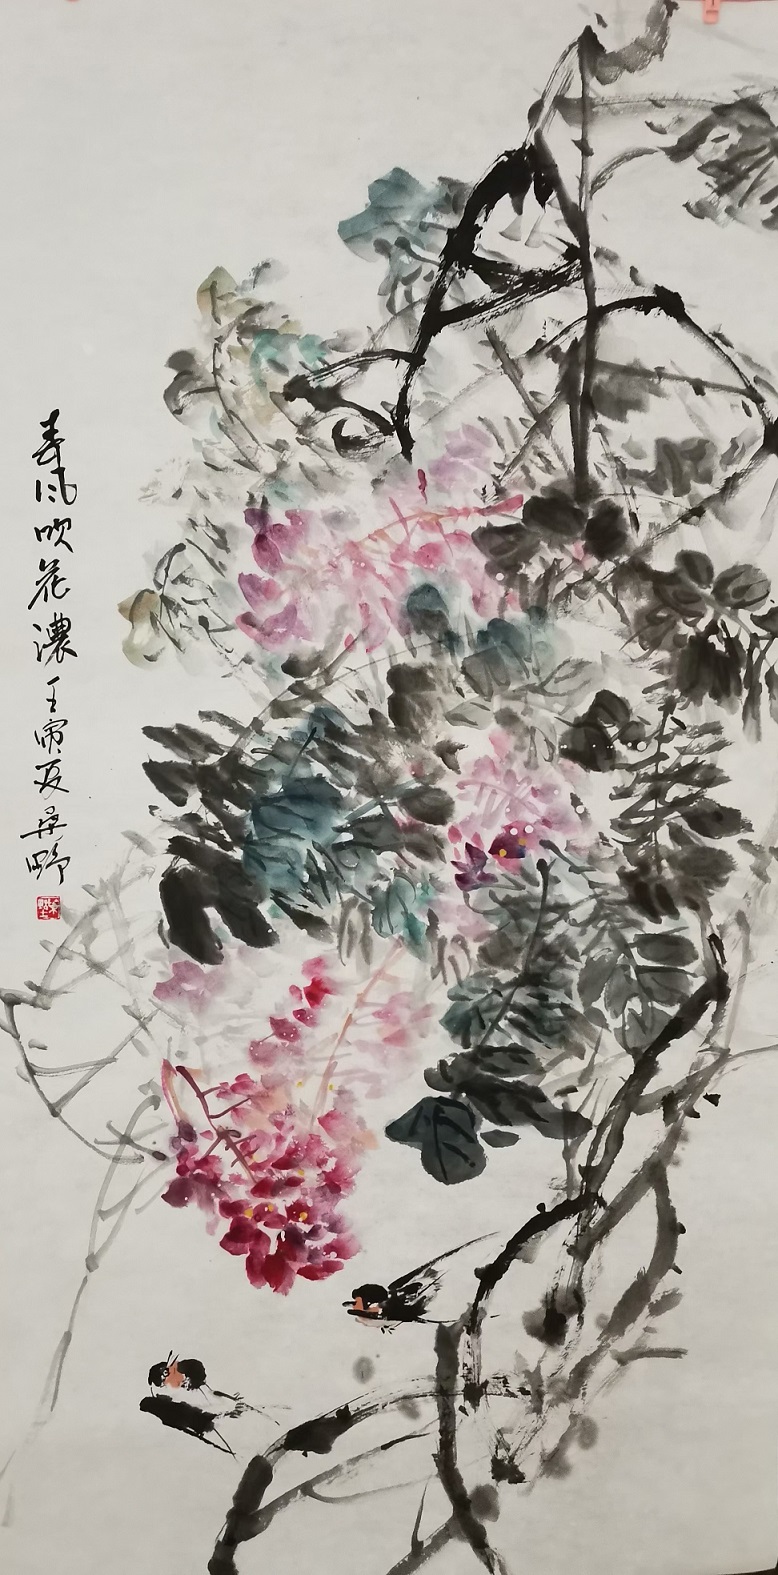 春风吹花濃 壬寅夏 桑野